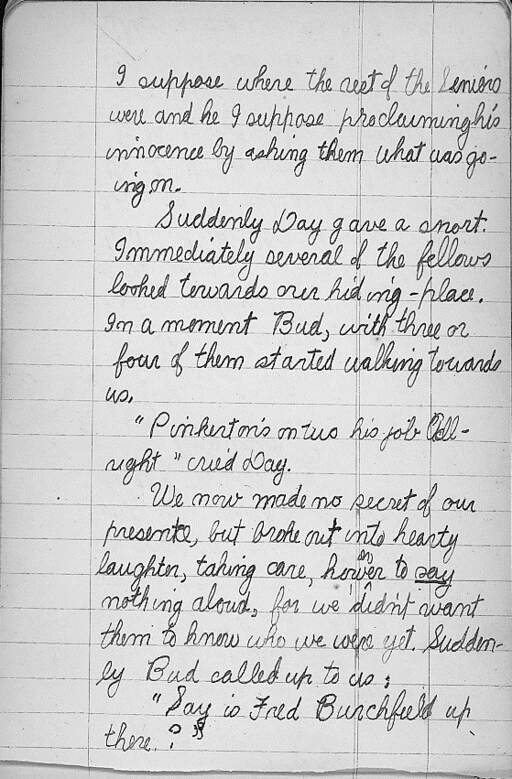 I suppose where the rest of the Seniors
were and he I suppose proclaiming his
innocence by asking them what was go-
ing on.
Suddenly Day gave a snort.
Immediately several of the fellows
looked towards our hiding-place.
In a moment Bud, with three or
four of them started walking towards
us.
"Pinkerton's ontuo his job All-
right" cried Day.
We now made no secret of our
presence, but broke out into hearty
laughter, taking care, however to say
nothing aloud, for we didn't want
them to know who we were yet. Sudden-
ly Bud called up to us:
"Say is Fred Burchfield up
there.?"